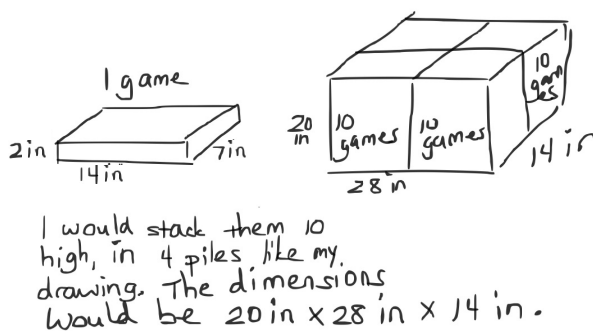 1 game
2in
14in
7in
20
in
10
games
10
games
10
gam
es
28 in
14 in
I would stack them 10
high, in 4 piles like my
drawing. The dimensions
would be 20 in x 28 in x 14 in.